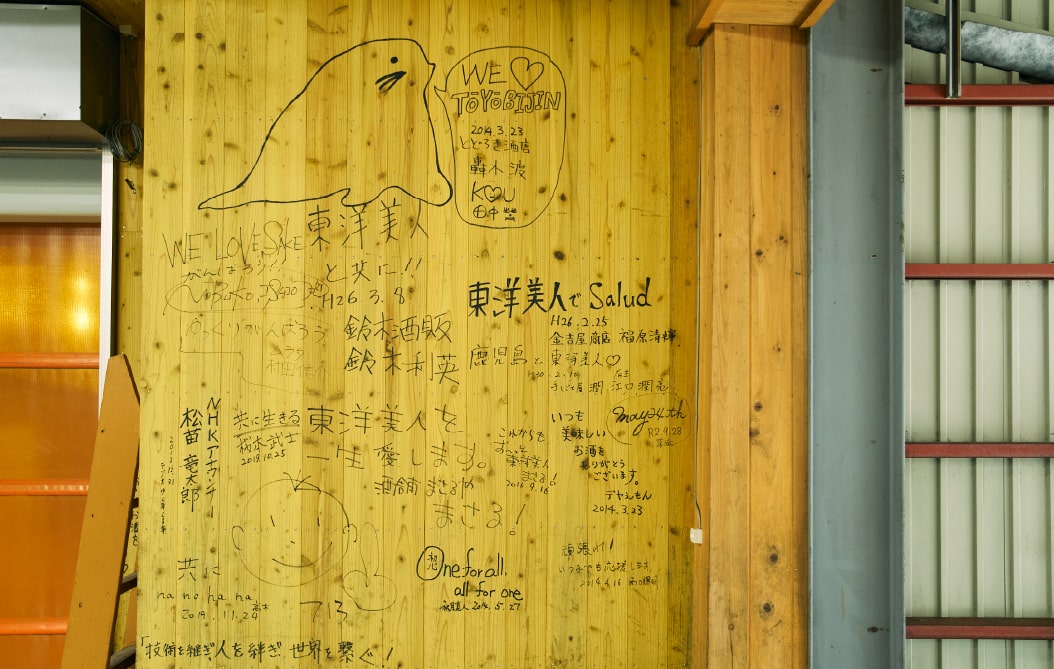 WE ♡
TŌYŌBIJIN
2014.3.23
とどろき酒店
轟木 渡
田中
WE LOVE SAKE
がんばろう!!
東洋美人
と共に!!
H26.3.8
鈴木酒販
鈴木利英
東洋美人で Salud
H26.2.25
金吉屋商店 福原清輝
鹿児島と東洋美人♡
じっくりがんばろう
NHKアナウンサー
松苗 竜太郎
共に生きる
桜本武士
2019.10.25
東洋美人を
一生愛します。
酒舗 まさるや
まさる!
これからも
ずーっと
東洋美人
いつも
美味しい
お酒を
ありがとう
ございます。
デヤえもん
2014.3.23
may24th
R2.9.28
共に
nanohana
2019.11.24
713
One for all.
all for one
2014.5.27
頑張れ!
いつまでも応援します
2014.4.16
「技術を継ぎ、人を絆ぎ、世界を繋ぐ!